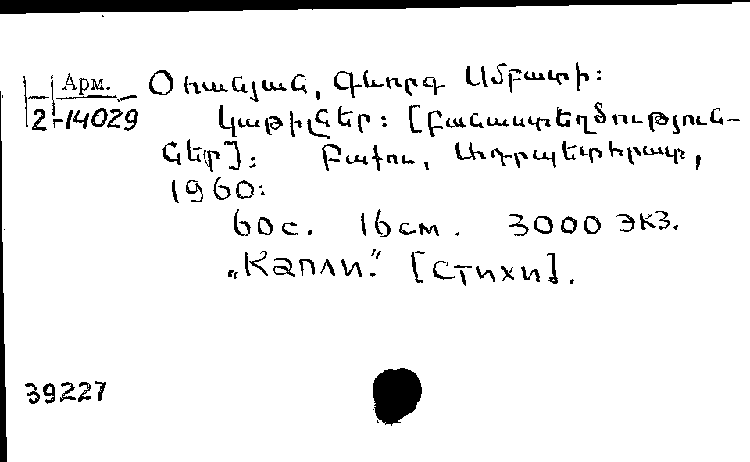 Арм.
2-14029
Օհանյան, Գևորգ Սմբատի:
Կաթիլներ: [Բանաստեղծություն-
ներ]: Բաքու, Ադրպետհրատ,
1960:
60с. 16см. 3000 экз.
„Капли.” [Стихи].
39227